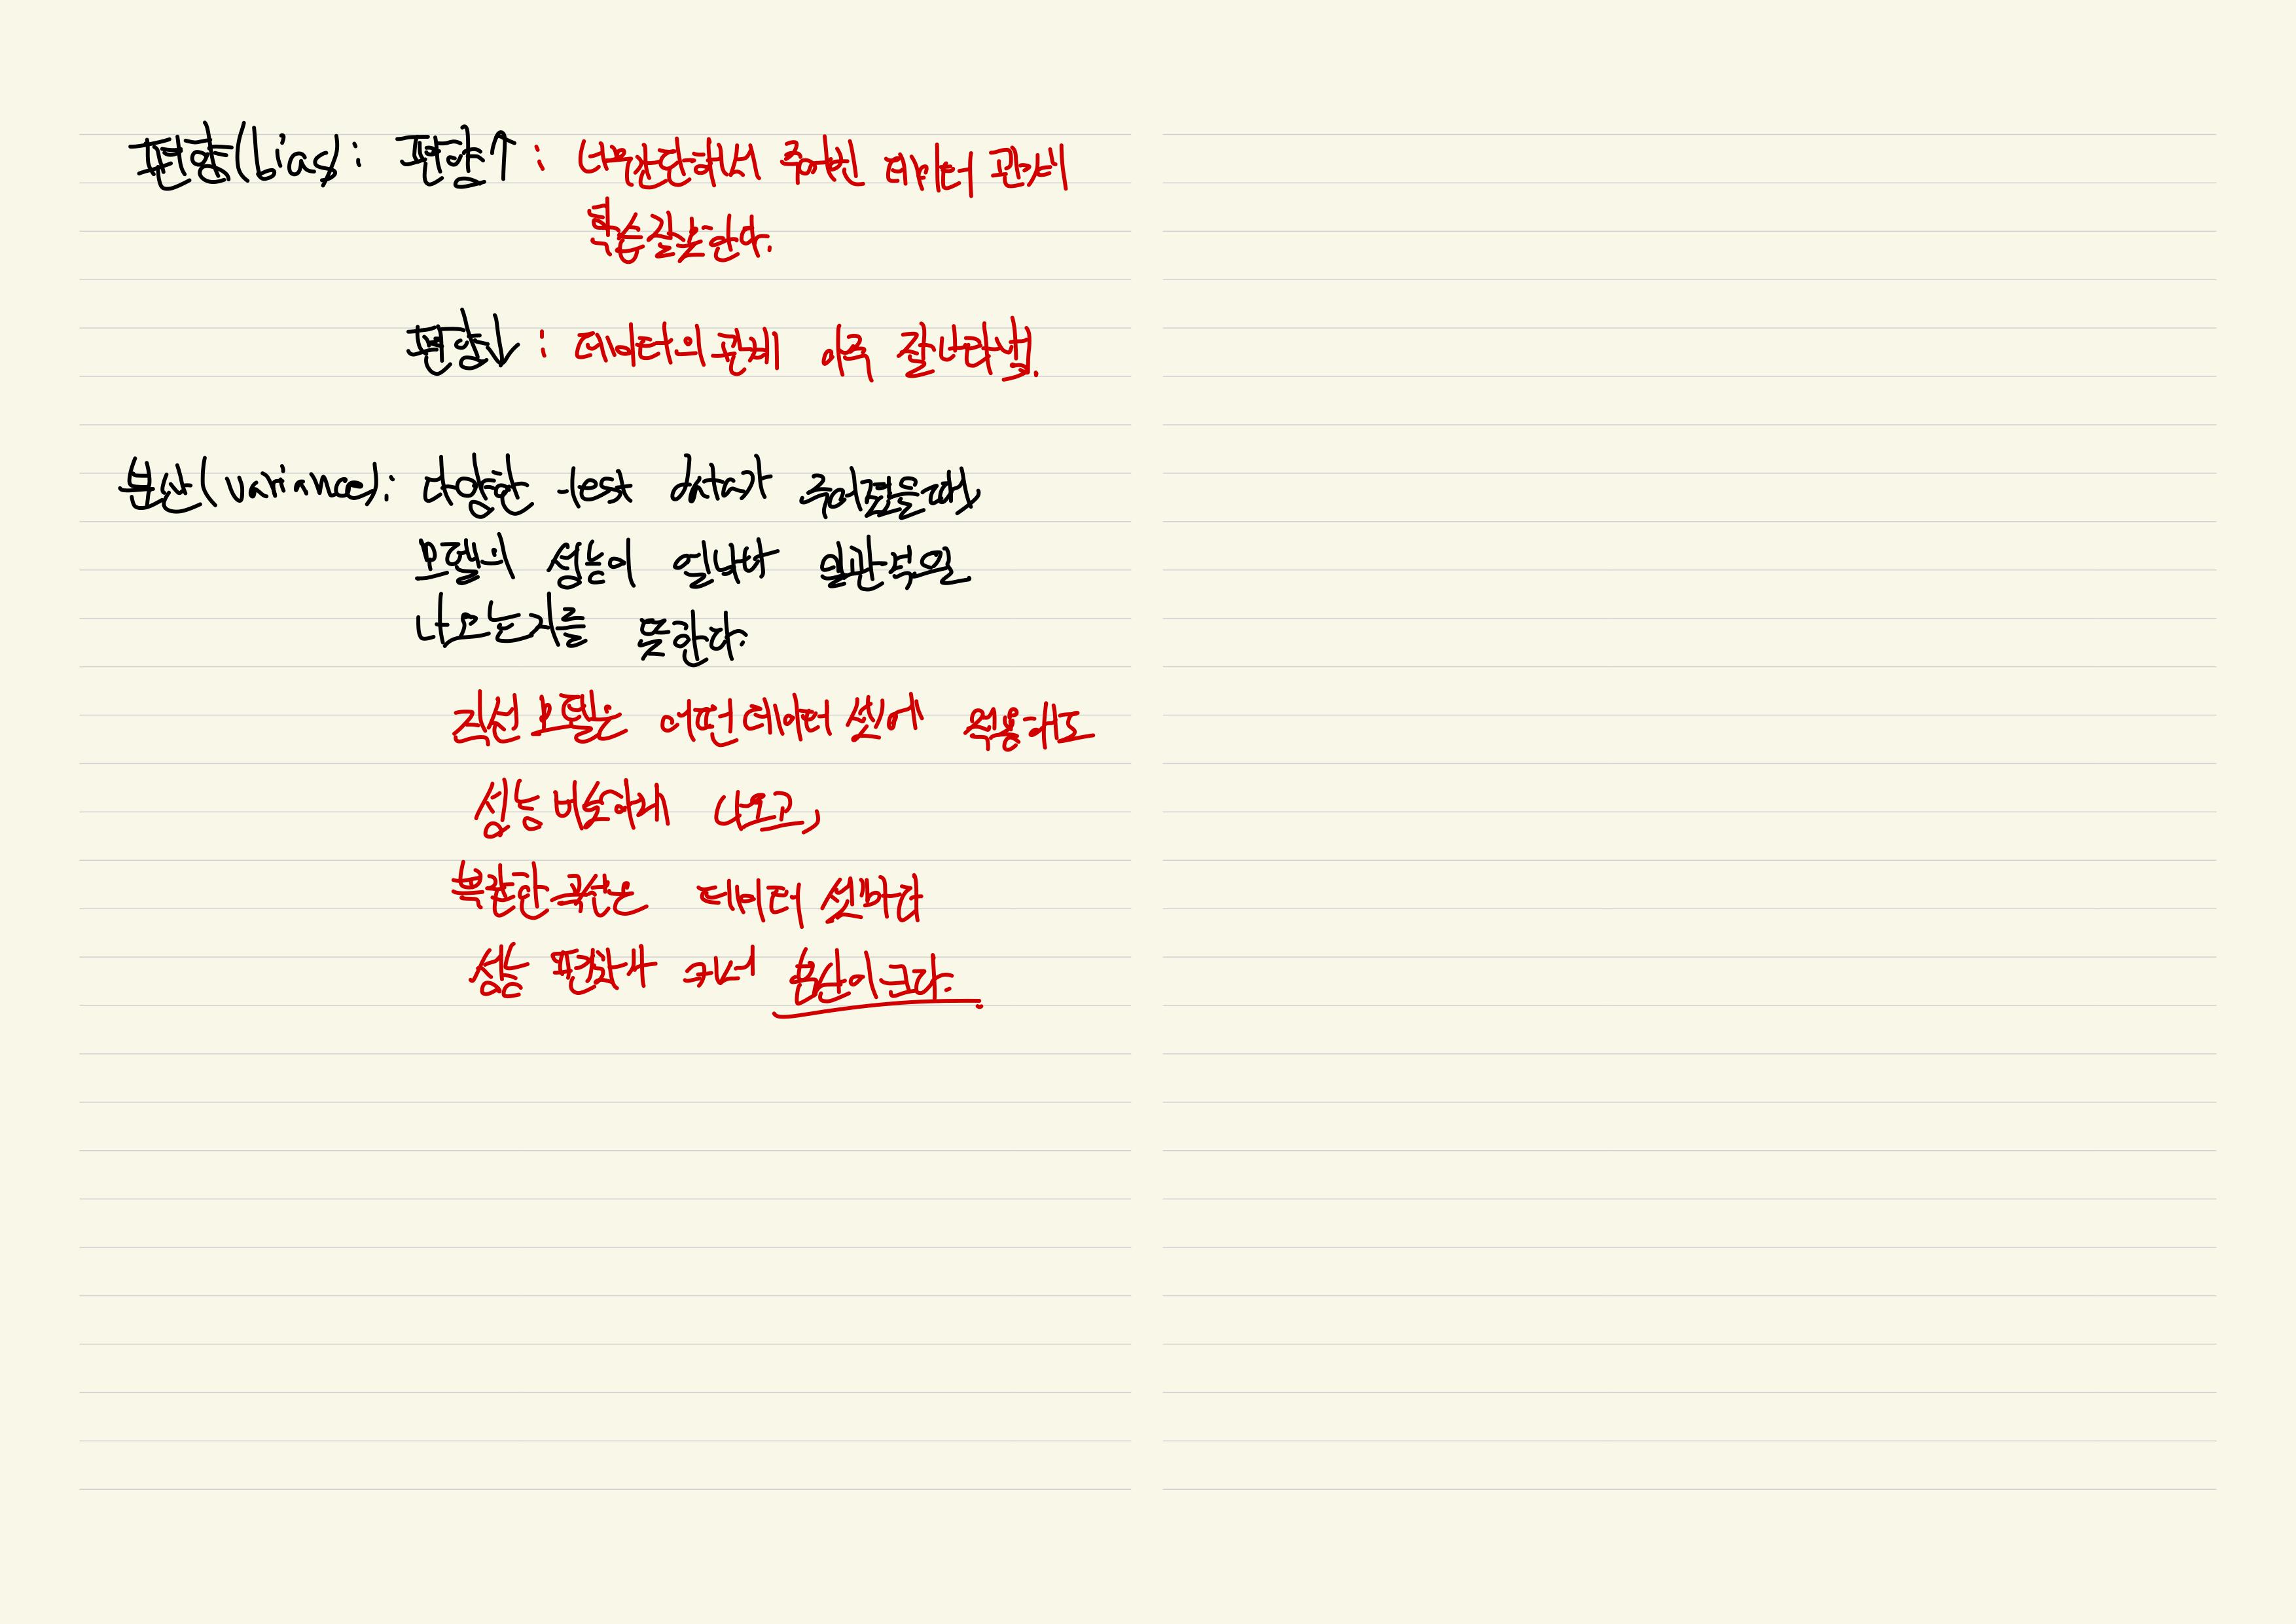 편향(bias): 편향↑: 너무 간단해서 주어진 데이터 관계
학습 잘 못한다.
편향↓: 데이터의 관계 아주 잘 나타냄.
분산(variance): 다양한 test data가 주어졌을 때,
모델의 성능이 얼마나 일관적으로
나오는지를 뜻한다.
직선 모델은 어떤 데이터 셋에 적용해도
성능 비슷하게 나오고,
복잡한 곡선은 데이터 셋마다
성능 편차가 커서 분산이 크다.